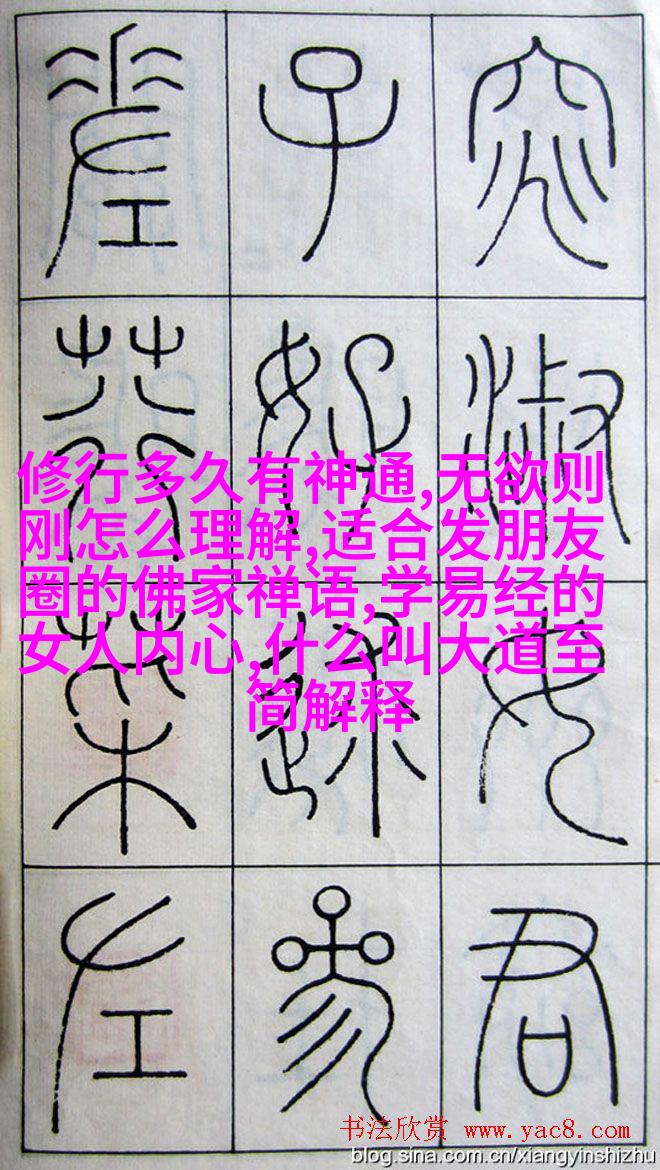 窕淑女君
子好逑參
差荇菜左
修行多久有神通,无欲则
刚怎么理解,适合发朋友
圈的佛家禅语,学易经的
女人内心,什么叫大道至
简解释
书法欣赏 www.yac8.com
blog.sina.com.cn/xiangyinshizhu